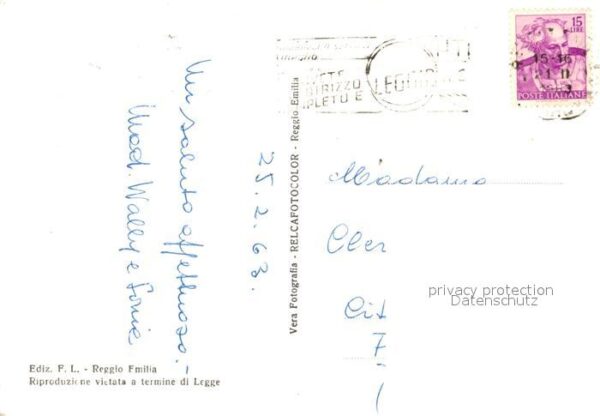 Un saluto affettuoso.-
Mad. Wally e Sonia
25.2.63.
Ediz. F. L. - Reggio Emilia
Riproduzione vietata a termine di Legge
Vera Fotografia - RELCAFOTOCOLOR - Reggio Emilia
INDIRIZZO
COMPLETO E LEGGIBILE
15
LIRE
POSTE ITALIANE
Madame
Cit
7
privacy protection
Datenschutz